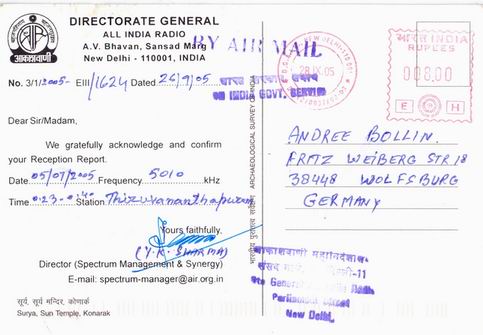 DIRECTORATE GENERAL
ALL INDIA RADIO
A.V. Bhavan, Sansad Marg
New Delhi - 110001, INDIA
आकाशवाणी
No. 3/1/2005- EIII/1624 Dated 26/9/05
Dear Sir/Madam,
We gratefully acknowledge and confirm
your Reception Report.
Date 05/07/2005 Frequency 5010 kHz
Time Station Thiruvananthapuram
Yours faithfully,
(Y.K. SHARMA)
Director (Spectrum Management & Synergy)
E-mail: spectrum-manager@air.org.in
सूर्य, सूर्य मन्दिर, कोणार्क
Surya, Sun Temple, Konarak
ARCHAEOLOGICAL SURVEY OF
BY AIR MAIL
ON INDIA GOVT. SERVICE
NEW DELHI-110001
28.IX.05
भारत INDIA
RUPEES
008.00
E H
ANDREE BOLLIN.
FRITZ WEIBERG STR 18
38448 WOLFSBURG
GERMANY
आकाशवाणी महानिदेशालय
संसद मार्ग, -11
General
Parliament Street
New Delhi.